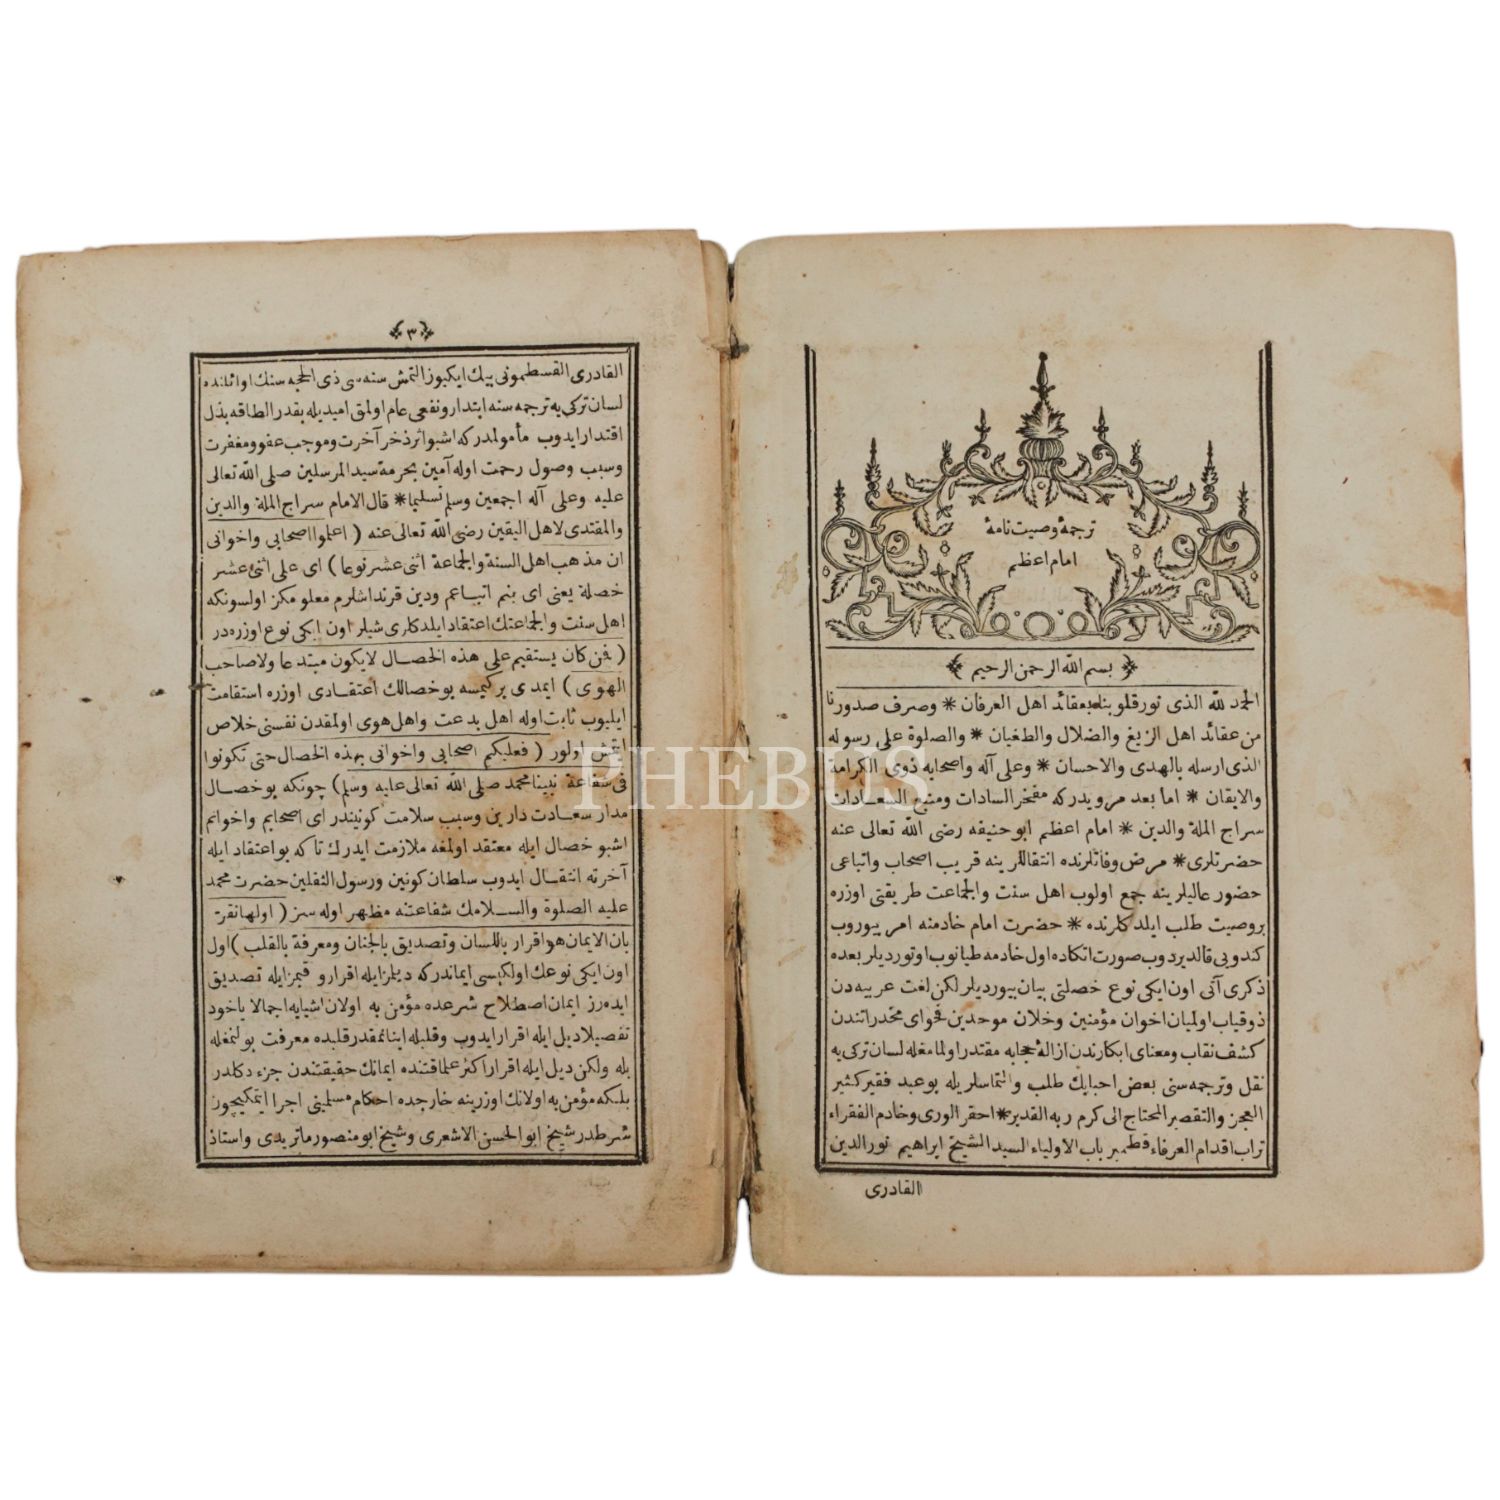 ترجمهٔ وصیت نامهٔ
امام اعظم
بسم الله الرحمن الرحیم
الحمد لله الذی نور قلوبنا بعقائد اهل العرفان * وصرف صدورنا
من عقائد اهل الزیغ والضلال والطغیان * والصلوة علی رسوله
الذی ارسله بالهدی والاحسان * وعلی آله واصحابه ذوی الکرامة
والایقان * اما بعد مرویدرکه مفخر السادات ومنبع السعادات
سراج الملة والدین * امام اعظم ابو حنیفه رضی الله تعالی عنه
حضرتلری * مرض وفاتلرنده انتقاللرینه قریب اصحاب واتباعی
حضور عالیلرینه جمع اولوب اهل سنت والجماعت طریقتی اوزره
بر وصیت طلب ایلدکلرنده * حضرت امام خادمنه امر بیوروب
کندوبی قالدیردوب صورت اتکاده اول خادمه طیانوب اوتوردیلر بعده
ذکری آتی اون ایکی نوع خصلتی بیان بیوردیلر لکن لغت عربیه دن
ذوقیاب اولمیان اخوان مؤمنین وخلان موحدین فحوای مخدراتندن
کشف نقاب ومعنای ابکارندن ازالهٔ حجابه مقتدر اولمامغله لسان ترکی به
نقل وترجمه سنی بعض احبابك طلب والتماسلریله بو عبد فقیر کثیر
العجز والتقصیر المحتاج الی کرم ربه القدیر * احقر الوری وخادم الفقراء
تراب اقدام العرفاء قطمیر باب الاولیاء السید الشیخ ابراهیم نور الدین
القادری
٣
القادری القسطمونی بیك ایکیوز التمش سنه سی ذی الحجه سنك اوائلنده
لسان ترکی به ترجمه سنه ابتدار ونفعی عام اولمق امیدیله بقدر الطاقه بذل
اقتدار ایدوب مأمولمدرکه اشبو اثر ذخر آخرت وموجب عفو ومغفرت
وسبب وصول رحمت اوله آمین بحرمة سید المرسلین صلی الله تعالی
علیه وعلی آله اجمعین وسلم تسلیما * قال الامام سراج الملة والدین
والمقتدی لاهل الیقین رضی الله تعالی عنه ( اعلموا اصحابی واخوانی
ان مذهب اهل السنة والجماعة اثنی عشر نوعا ) ای علی اثنی عشر
خصلة یعنی ای بنم اتباعم ودین قرنداشلرم معلومکز اولسونکه
اهل سنت والجماعتك اعتقاد ایلدکلری شیلر اون ایکی نوع اوزره در
( فمن کان یستقیم علی هذه الخصال لا یکون مبتدعا ولا صاحب
الهوی ) ایمدی بر کیمسه بو خصالك اعتقادی اوزره استقامت
ایلیوب ثابت اوله اهل بدعت واهل هوی اولمقدن نفسنی خلاص
ایتمش اولور ( فعلیکم اصحابی واخوانی بهذه الخصال حتی تکونوا
فی شفاعة نبینا محمد صلی الله تعالی علیه وسلم ) چونکه بو خصال
مدار سعادت دارین وسبب سلامت کونیندر ای اصحابم واخوانم
اشبو خصال ایله معتقد اولمغه ملازمت ایدرك تاکه بو اعتقاد ایله
آخرته انتقال ایدوب سلطان کونین ورسول الثقلین حضرت محمد
علیه الصلوة والسلامك شفاعتنه مظهر اوله سز ( اولها نقرّ
بان الایمان هو اقرار باللسان وتصدیق بالجنان ومعرفة بالقلب ) اول
اون ایکی نوعك اولکیسی ایماندرکه دیلمز ایله اقرار و قلبمز ایله تصدیق
ایده رز ایمان اصطلاح شرعده مؤمن به اولان اشیایه اجمالا یاخود
تفصیلا دیل ایله اقرار ایدوب وقلبله اینانمقدر قلبده معرفت بولنمغله
بله ولکن دیل ایله اقرار اکثر علما قتنده ایمانك حقیقتندن جزء دکلدر
بلکه مؤمن به اولانك اوزرینه خارجده احکام مسلمینی اجرا ایتمکیچون
شرطدر شیخ ابو الحسن الاشعری وشیخ ابو منصور ماتریدی واستاذ
PHEBUS